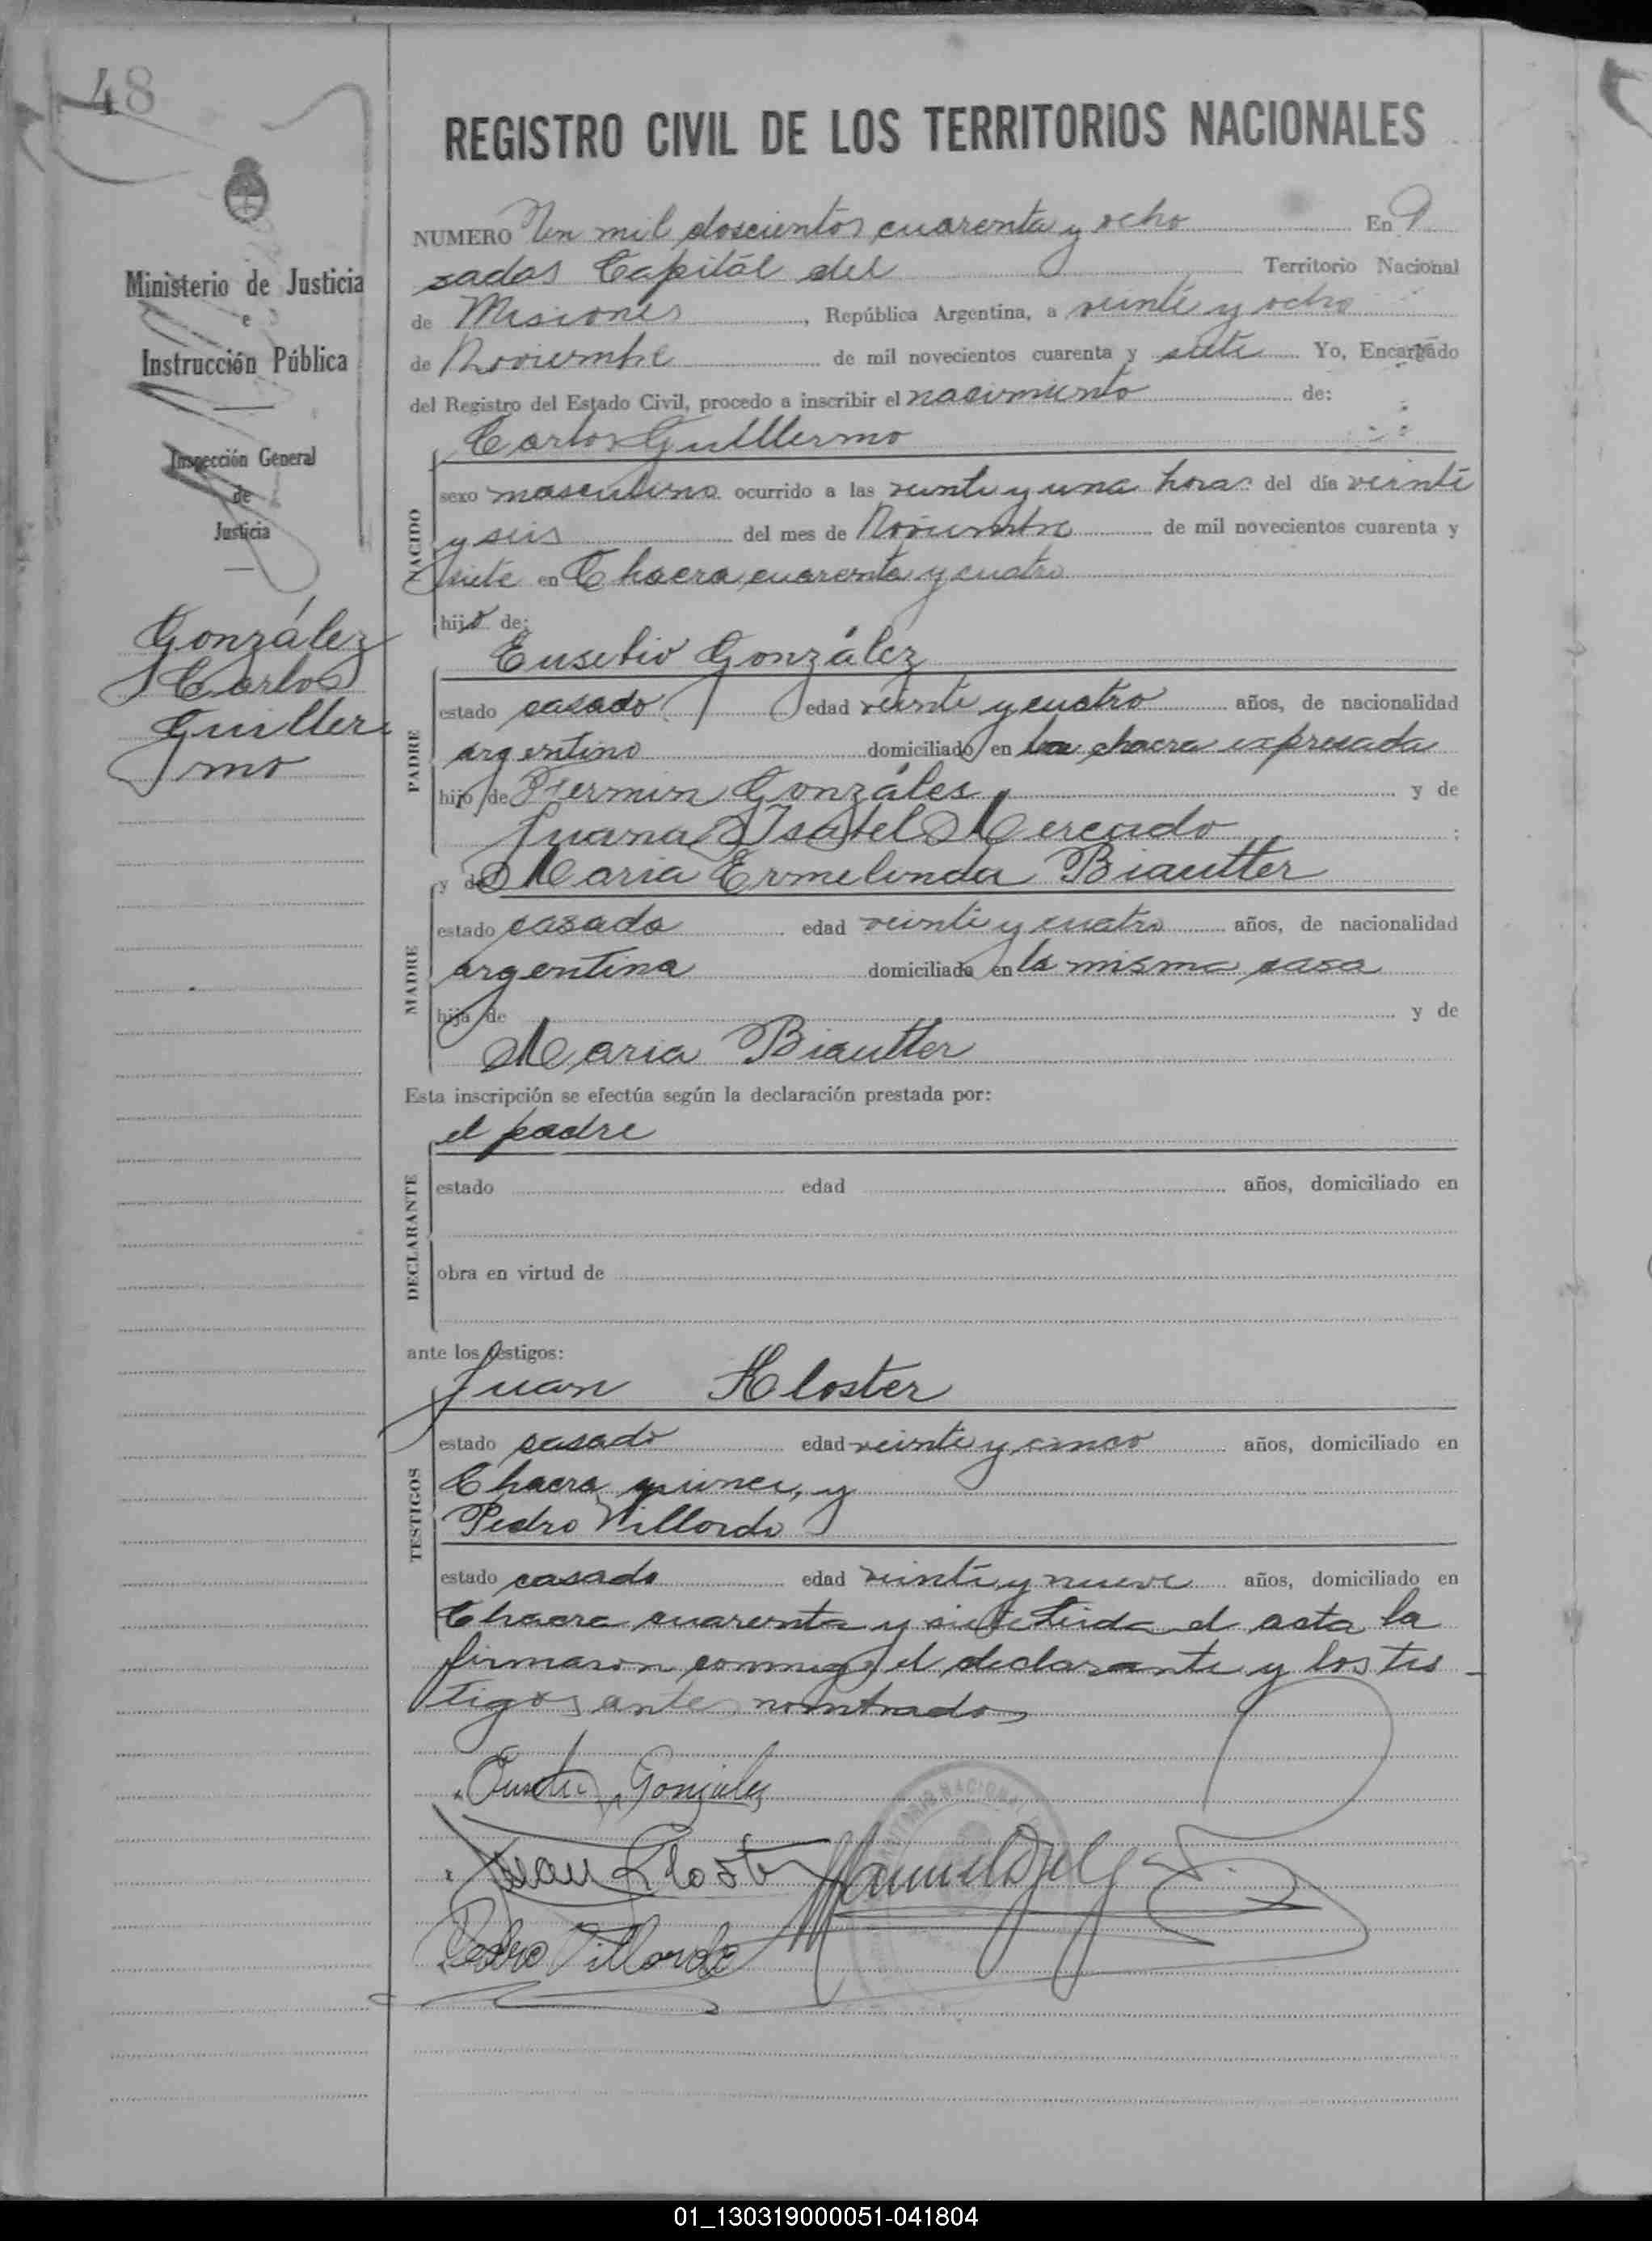 48
Ministerio de Justicia
e
Instrucción Pública
Inspección General
de
Justicia
González
Carlos
Guiller
mo
REGISTRO CIVIL DE LOS TERRITORIOS NACIONALES
NUMERO Un mil doscientos cuarenta y ocho En P
sadas Capitál del Territorio Nacional
de Misiones, República Argentina, a veinte y ocho
de Noviembre de mil novecientos cuarenta y siete Yo, Encargado
del Registro del Estado Civil, procedo a inscribir el nacimiento de:
Carlos Guillermo
NACIDO
sexo masculino ocurrido a las veinte y una horas del día veinte
y seis del mes de Noviembre de mil novecientos cuarenta y
siete en Chacra cuarenta y cuatro
hijo de:
Eusebio González
PADRE
estado casado edad veinte y cuatro años, de nacionalidad
argentino domiciliado en la chacra expresada
hijo de Fiermin Gonzáles y de
Juana Isabel Mercado
y de Maria Ermelinda Biautter
MADRE
estado casada edad veinte y cuatro años, de nacionalidad
argentina domiciliada en la misma casa
hija de y de
Maria Biautter
Esta inscripción se efectúa según la declaración prestada por:
el padre
DECLARANTE
estado edad años, domiciliado en
obra en virtud de
ante los testigos:
Juan Kloster
TESTIGOS
estado casado edad veinte y cinco años, domiciliado en
Chacra quince, y
Pedro Villordo
estado casado edad veinte y nueve años, domiciliado en
Chacra cuarenta y siete Leida el acta la
firmaron conmigo el declarante y los tes
tigos antes nombrados
Gonzalez
Juan Kloster
Pedro Villordo
01_130319000051-041804